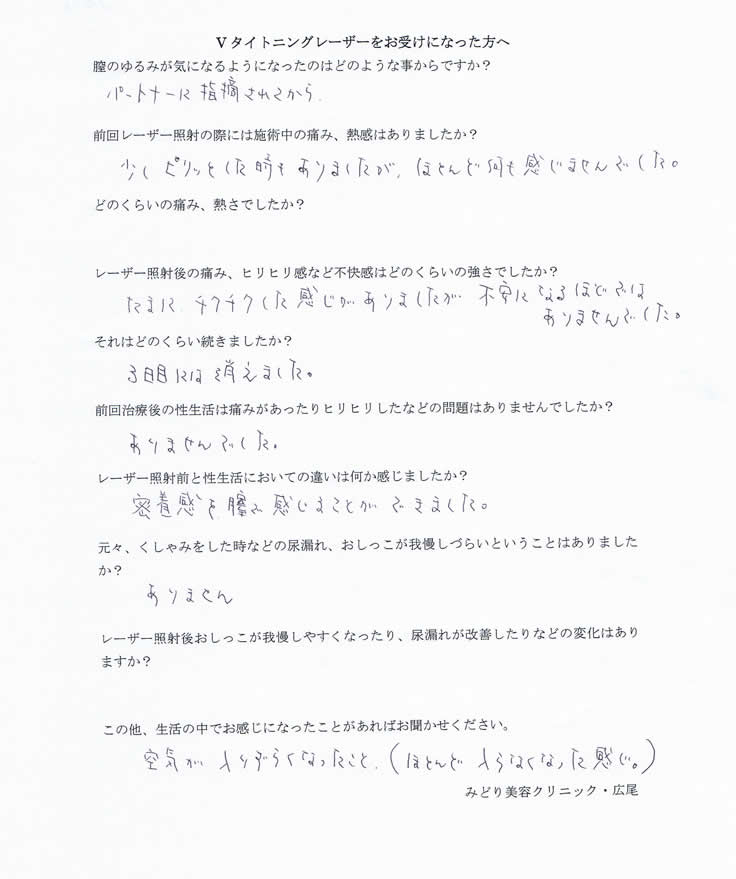 Vタイトニングレーザーをお受けになった方へ
膣のゆるみが気になるようになったのはどのような事からですか？
パートナーに指摘されてから.
前回レーザー照射の際には施術中の痛み、熱感はありましたか？
少しピリッとした時もありましたが、ほとんど何も感じませんでした。
どのくらいの痛み、熱さでしたか？
レーザー照射後の痛み、ヒリヒリ感など不快感はどのくらいの強さでしたか？
たまに チクチクした感じがありましたが 不安になるほどでは
ありませんでした。
それはどのくらい続きましたか？
3日目には消えました。
前回治療後の性生活は痛みがあったりヒリヒリしたなどの問題はありませんでしたか？
ありませんでした。
レーザー照射前と性生活においての違いは何か感じましたか？
密着感を 感じることができました。
元々、くしゃみをした時などの尿漏れ、おしっこが我慢しづらいということはありました
か？
ありません
レーザー照射後おしっこが我慢しやすくなったり、尿漏れが改善したりなどの変化はあり
ますか？
この他、生活の中でお感じになったことがあればお聞かせください。
空気が入りづらくなったこと.(ほとんど入らなくなった感じ。)
みどり美容クリニック・広尾